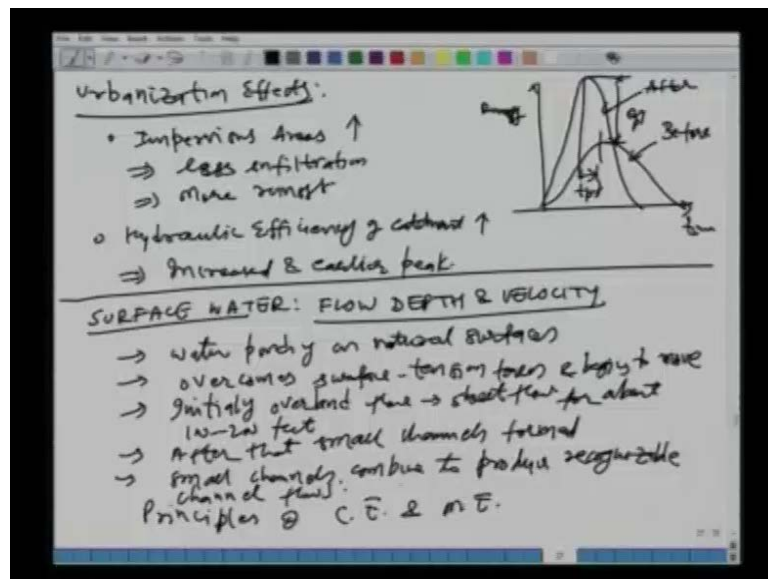 Urbanization Effects:
• Impervious Areas ↑
⇒ less infiltration
⇒ More runoff
• Hydraulic Efficiency of catchment ↑
⇒ Increased & earlier peak.
Runoff
After
Before
tp↓
time
SURFACE WATER: FLOW DEPTH & VELOCITY
→ water ponding on natural surfaces
→ overcomes surface-tension forces & begins to move
→ Initially overland flow → sheet flow for about
100-200 feet
→ After that small channels formed
→ small channels combine to produce recognizable
channel flow.
Principles C.E. & M.E.